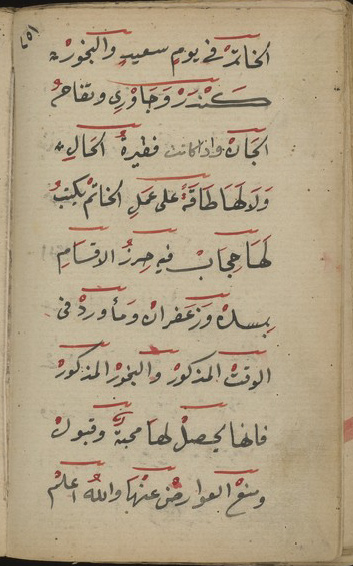 ٧٥١
الخاتم في يوم سعيد والبخور
كندر وجاوري وتفاح
الجان واذا كانت فقيرة الحال
ولا لها طاقة على عمل الخاتم يكتب
لها حجاب فيه حرز الاقسام
بمسك وزعفران ومأورد فى
الوقت المذكور والبخور المذكور
فانها يحصل لها محبة وقبول
ومنع العوارض عنها والله اعلم